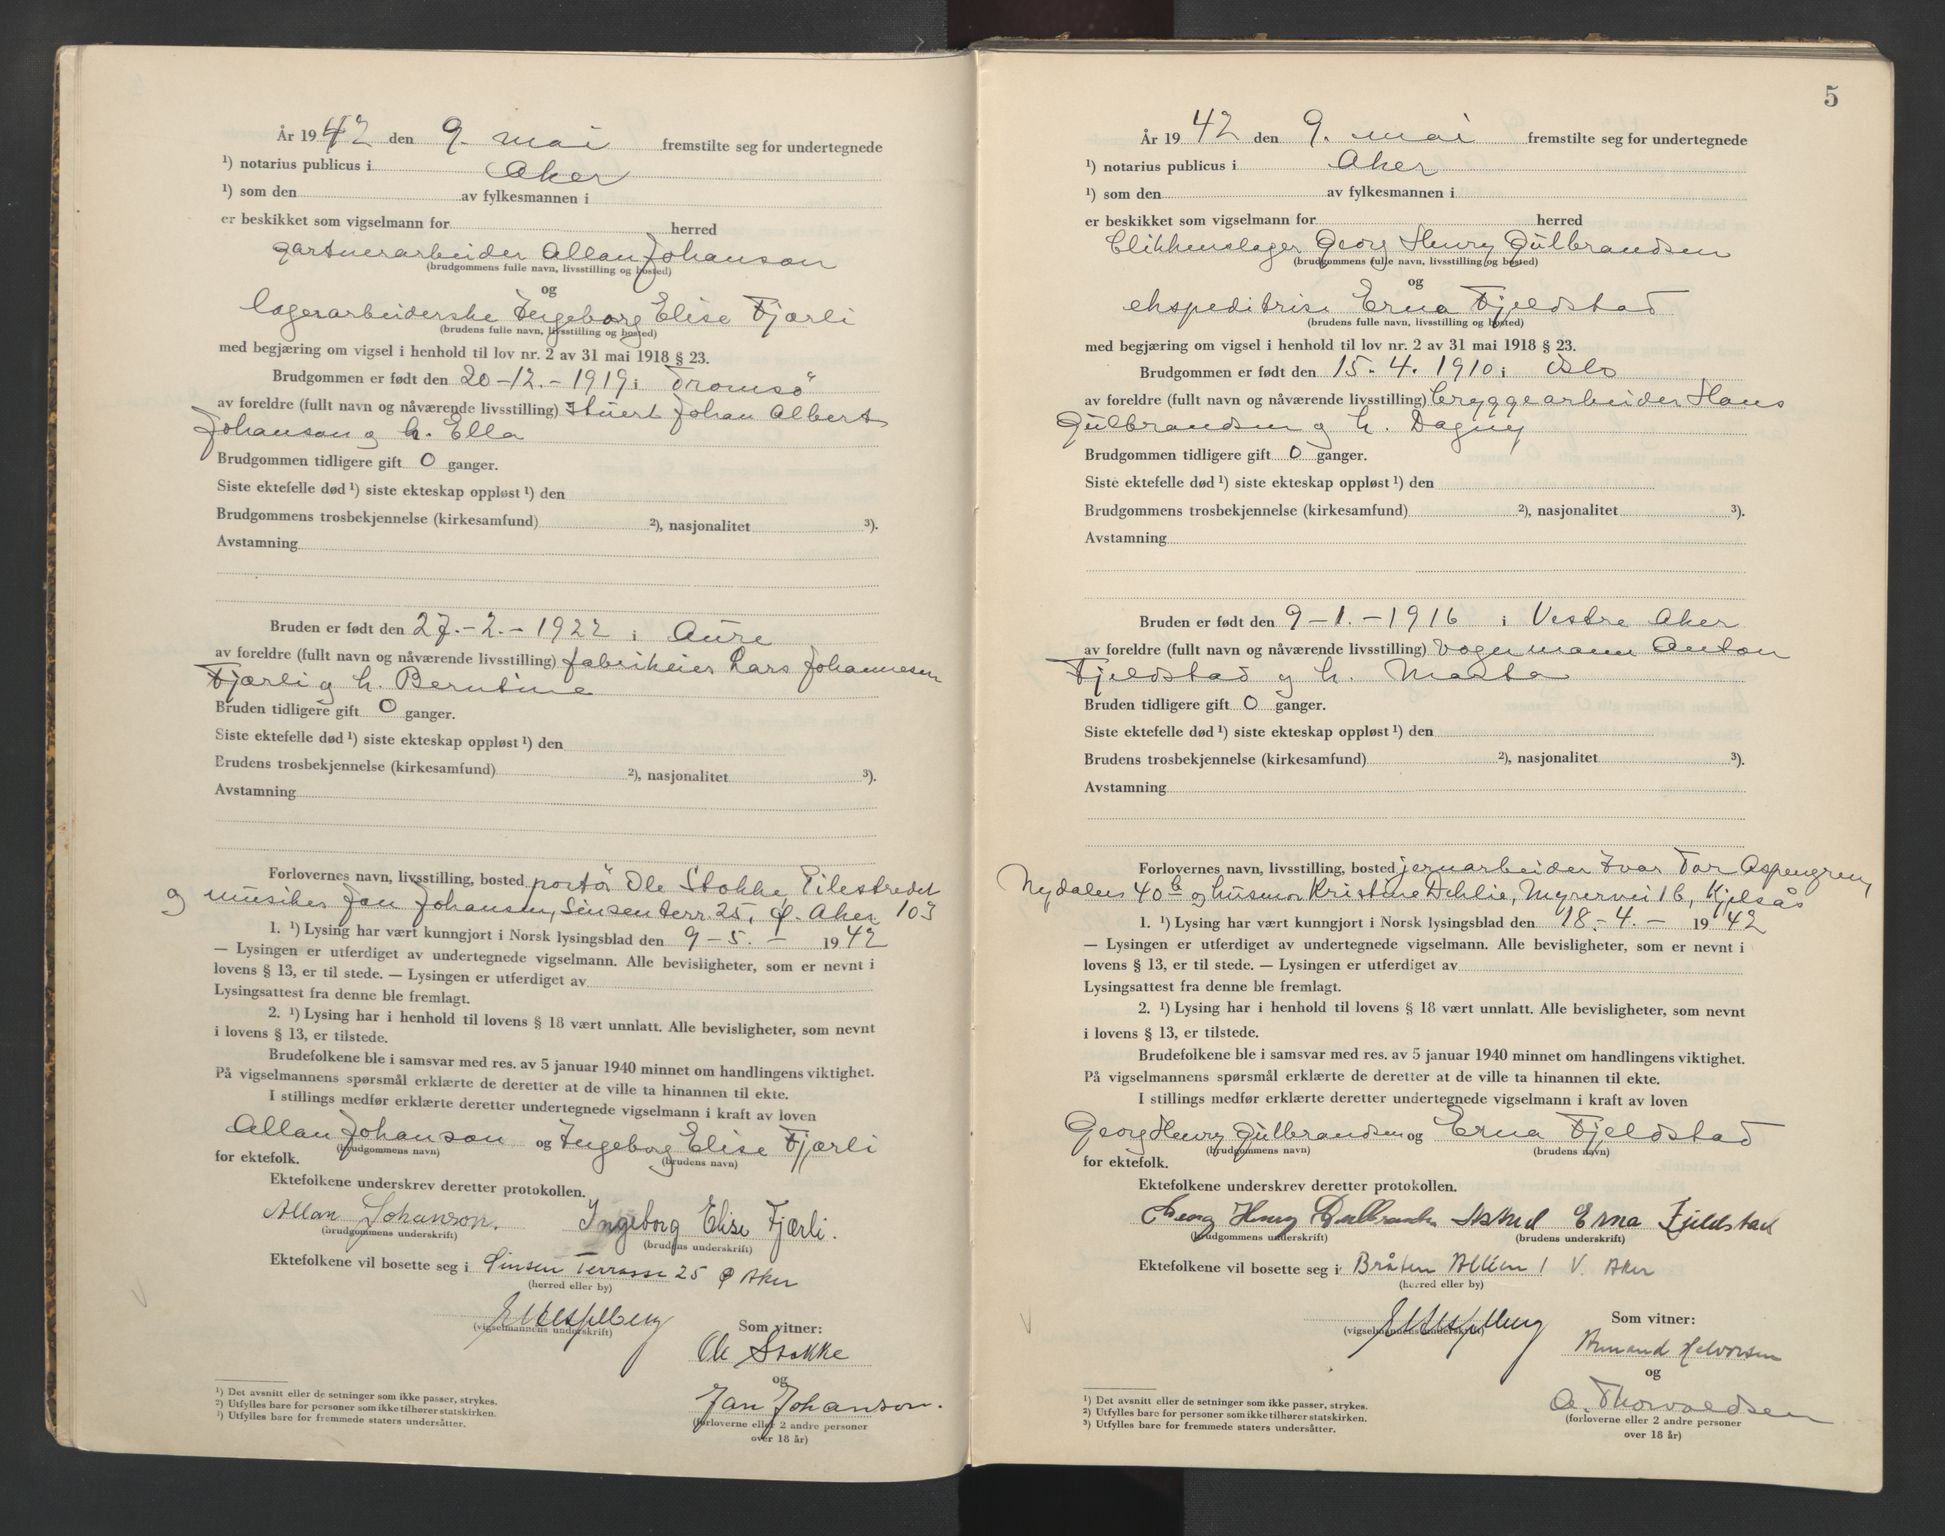 År 1942 den 9. mai fremstilte seg for undertegnede
¹) notarius publicus i Aker
¹) som den av fylkesmannen i
er beskikket som vigselmann for herred
gartnerarbeider Allan Johanson
(brudgommens fulle navn, livsstilling og bosted)
og
lagerarbeiderske Ingeborg Elise Fjærli
(brudens fulle navn, livsstilling og bosted)
med begjæring om vigsel i henhold til lov nr. 2 av 31 mai 1918 § 23.
Brudgommen er født den 20-12.-1919 i Tromsö
av foreldre (fullt navn og nåværende livsstilling) Stuert Johan Albert
Johanson og h. Ella
Brudgommen tidligere gift 0 ganger.
Siste ektefelle død ¹) siste ekteskap oppløst ¹) den
Brudgommens trosbekjennelse (kirkesamfund) ²), nasjonalitet ³).
Avstamning
Bruden er født den 27.-2.-1922 i Aure
av foreldre (fullt navn og nåværende livsstilling) fabrikeier Lars Johannesen
Fjærli og h. Berntine
Bruden tidligere gift 0 ganger.
Siste ektefelle død ¹) siste ekteskap oppløst ¹) den
Brudens trosbekjennelse (kirkesamfund) ²), nasjonalitet ³).
Avstamning
Forlovernes navn, livsstilling, bosted portör Ole Stokke, Pilestredet 103
og musiker Jan Johansen, Sinsen terr. 25, Ø. Aker
1. ¹) Lysing har vært kunngjort i Norsk lysingsblad den 9-5.- 1942
— Lysingen er utferdiget av undertegnede vigselmann. Alle bevisligheter, som er nevnt i
lovens § 13, er til stede. — Lysingen er utferdiget av
Lysingsattest fra denne ble fremlagt.
2. ¹) Lysing har i henhold til lovens § 18 vært unnlatt. Alle bevisligheter, som nevnt
i lovens § 13, er tilstede.
Brudefolkene ble i samsvar med res. av 5 januar 1940 minnet om handlingens viktighet.
På vigselmannens spørsmål erklærte de deretter at de ville ta hinannen til ekte.
I stillings medfør erklærte deretter undertegnede vigselmann i kraft av loven
Allan Johanson og Ingeborg Elise Fjærli
(brudgommens navn) (brudens navn)
for ektefolk.
Ektefolkene underskrev deretter protokollen.
Allan Johanson. Ingeborg Elise Fjærli.
(brudgommens underskrift) (brudens underskrift)
Ektefolkene vil bosette seg i Sinsen Terrasse 25 Ø Aker
(herred eller by)
(vigselmannens underskrift)
Som vitner:
Ole Stokke
og
Jan Johanson.
(forloverne eller 2 andre personer
over 18 år)
¹) Det avsnitt eller de setninger som ikke passer, strykes.
²) Utfylles bare for personer som ikke tilhører statskirken.
³) Utfylles bare for fremmede staters undersåtter.
5
År 1942 den 9. mai fremstilte seg for undertegnede
¹) notarius publicus i Aker
¹) som den av fylkesmannen i
er beskikket som vigselmann for herred
blikkenslager Georg Henry Gulbrandsen
(brudgommens fulle navn, livsstilling og bosted)
og
ekspeditrise Erna Fjeldstad
(brudens fulle navn, livsstilling og bosted)
med begjæring om vigsel i henhold til lov nr. 2 av 31 mai 1918 § 23.
Brudgommen er født den 15.-4.1910 i Oslo
av foreldre (fullt navn og nåværende livsstilling) bryggearbeider Hans
Gulbrandsen og h. Dagny
Brudgommen tidligere gift 0 ganger.
Siste ektefelle død ¹) siste ekteskap oppløst ¹) den
Brudgommens trosbekjennelse (kirkesamfund) ²), nasjonalitet ³).
Avstamning
Bruden er født den 9-1.-1916 i Vestre Aker
av foreldre (fullt navn og nåværende livsstilling) vognmann Anton
Fjeldstad og h. Marta
Bruden tidligere gift 0 ganger.
Siste ektefelle død ¹) siste ekteskap oppløst ¹) den
Brudens trosbekjennelse (kirkesamfund) ²), nasjonalitet ³).
Avstamning
Forlovernes navn, livsstilling, bosted jernarbeider Ivar Tor Aspengren,
Nydalen 40 b og husmor Kristine Dehlie, Myrervei 16, Kjelsås
1. ¹) Lysing har vært kunngjort i Norsk lysingsblad den 18.-4.- 1942
— Lysingen er utferdiget av undertegnede vigselmann. Alle bevisligheter, som er nevnt i
lovens § 13, er til stede. — Lysingen er utferdiget av
Lysingsattest fra denne ble fremlagt.
2. ¹) Lysing har i henhold til lovens § 18 vært unnlatt. Alle bevisligheter, som nevnt
i lovens § 13, er tilstede.
Brudefolkene ble i samsvar med res. av 5 januar 1940 minnet om handlingens viktighet.
På vigselmannens spørsmål erklærte de deretter at de ville ta hinannen til ekte.
I stillings medfør erklærte deretter undertegnede vigselmann i kraft av loven
Georg Henry Gulbrandsen og Erna Fjeldstad
(brudgommens navn) (brudens navn)
for ektefolk.
Ektefolkene underskrev deretter protokollen.
Georg Henry Gulbrandsen Erna Fjeldstad
(brudgommens underskrift) (brudens underskrift)
Ektefolkene vil bosette seg i Bråten Alleen 1 V. Aker
(herred eller by)
(vigselmannens underskrift)
Som vitner:
Amand Halvorsen
og
A. Thorvaldsen
(forloverne eller 2 andre personer
over 18 år)
¹) Det avsnitt eller de setninger som ikke passer, strykes.
²) Utfylles bare for personer som ikke tilhører statskirken.
³) Utfylles bare for fremmede staters undersåtter.